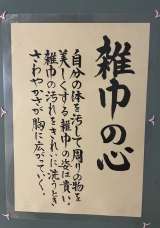 雑巾の心
自分の体を汚して周りの物を
美しくする雑巾の姿は貴い。
雑巾の汚れをきれいに洗うとき
さわやかさが胸に広がていく。